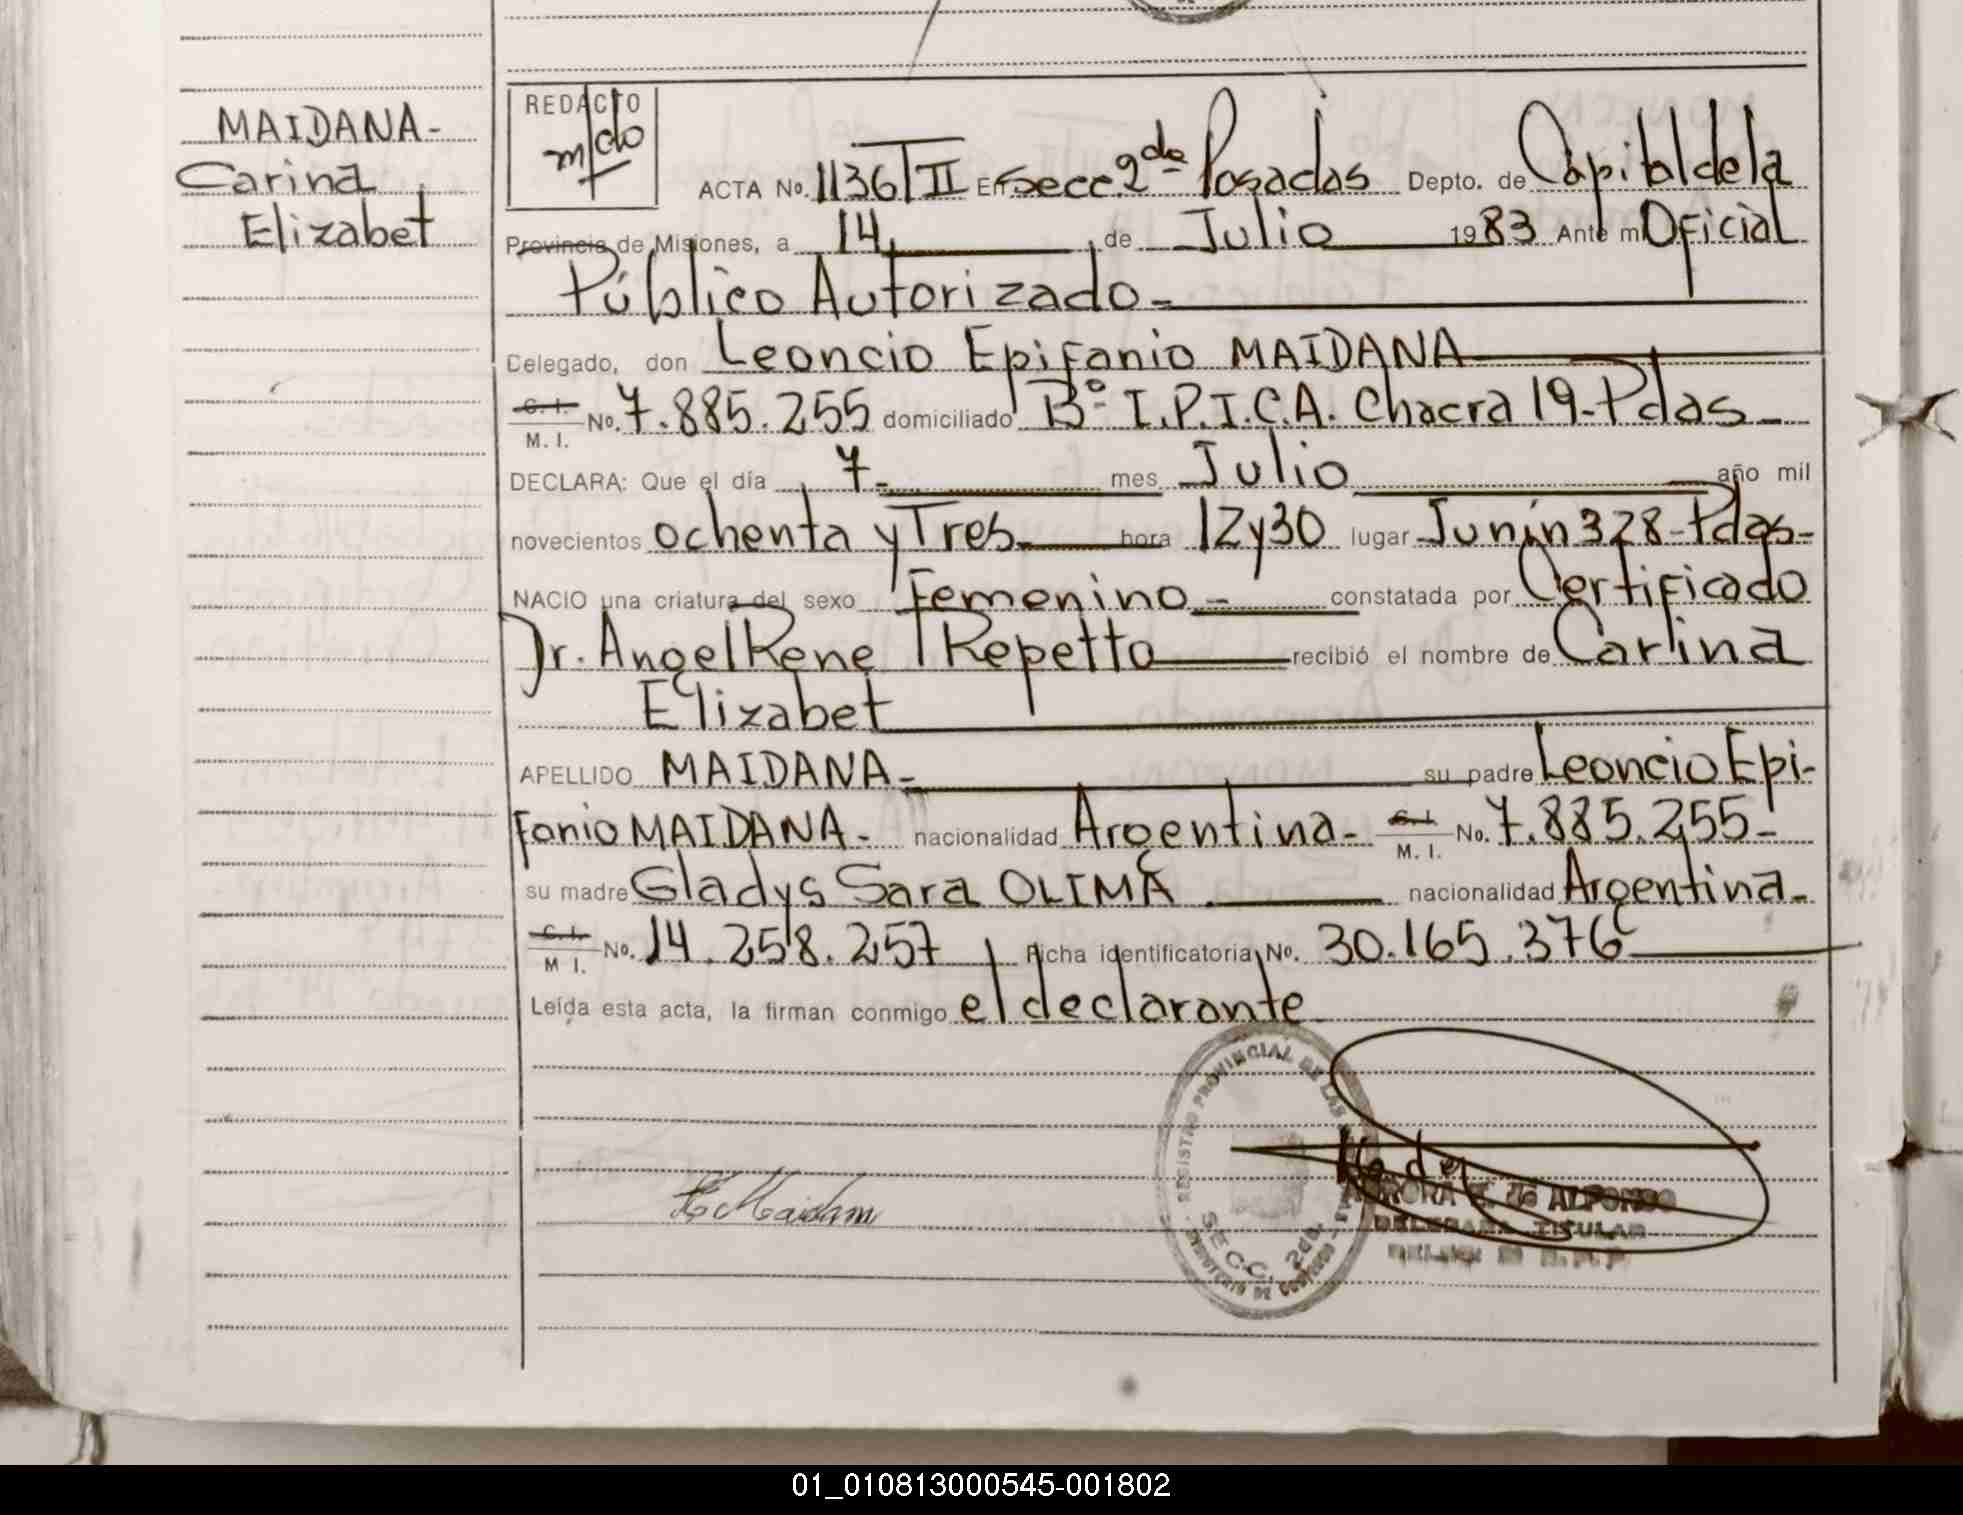 MAIDANA-
Carina
Elizabet
REDACTO
ACTA No. 1136 T II En Secc. 2da Posadas Depto. de Capital de la
Provincia de Misiones, a 14 de Julio 1983 Ante mí Oficial
Público Autorizado-
Delegado, don Leoncio Epifanio MAIDANA
C. I. No. 7.885.255 domiciliado Bº I.P.I.C.A. Chacra 19-Pdas-
M. I.
DECLARA: Que el día 7- mes Julio año mil
novecientos ochenta y Tres- hora 12y30 lugar Junín 328-Pdas-
NACIO una criatura del sexo Femenino- constatada por Certificado
Dr. Angel Rene Repetto recibió el nombre de Carina
Elizabet
APELLIDO MAIDANA- su padre Leoncio Epi-
fanio MAIDANA- nacionalidad Argentina- C. I. No. 7.885.255-
M. I.
su madre Gladys Sara OLIMA nacionalidad Argentina-
C. I. No. 14.258.257 Ficha identificatoria No. 30.165.376
M I.
Leída esta acta, la firman conmigo el declarante
REGISTRO PROVINCIAL DE LAS
SECC. 2da.
DE ALFONSO
DELEGADA TITULAR
01_010813000545-001802